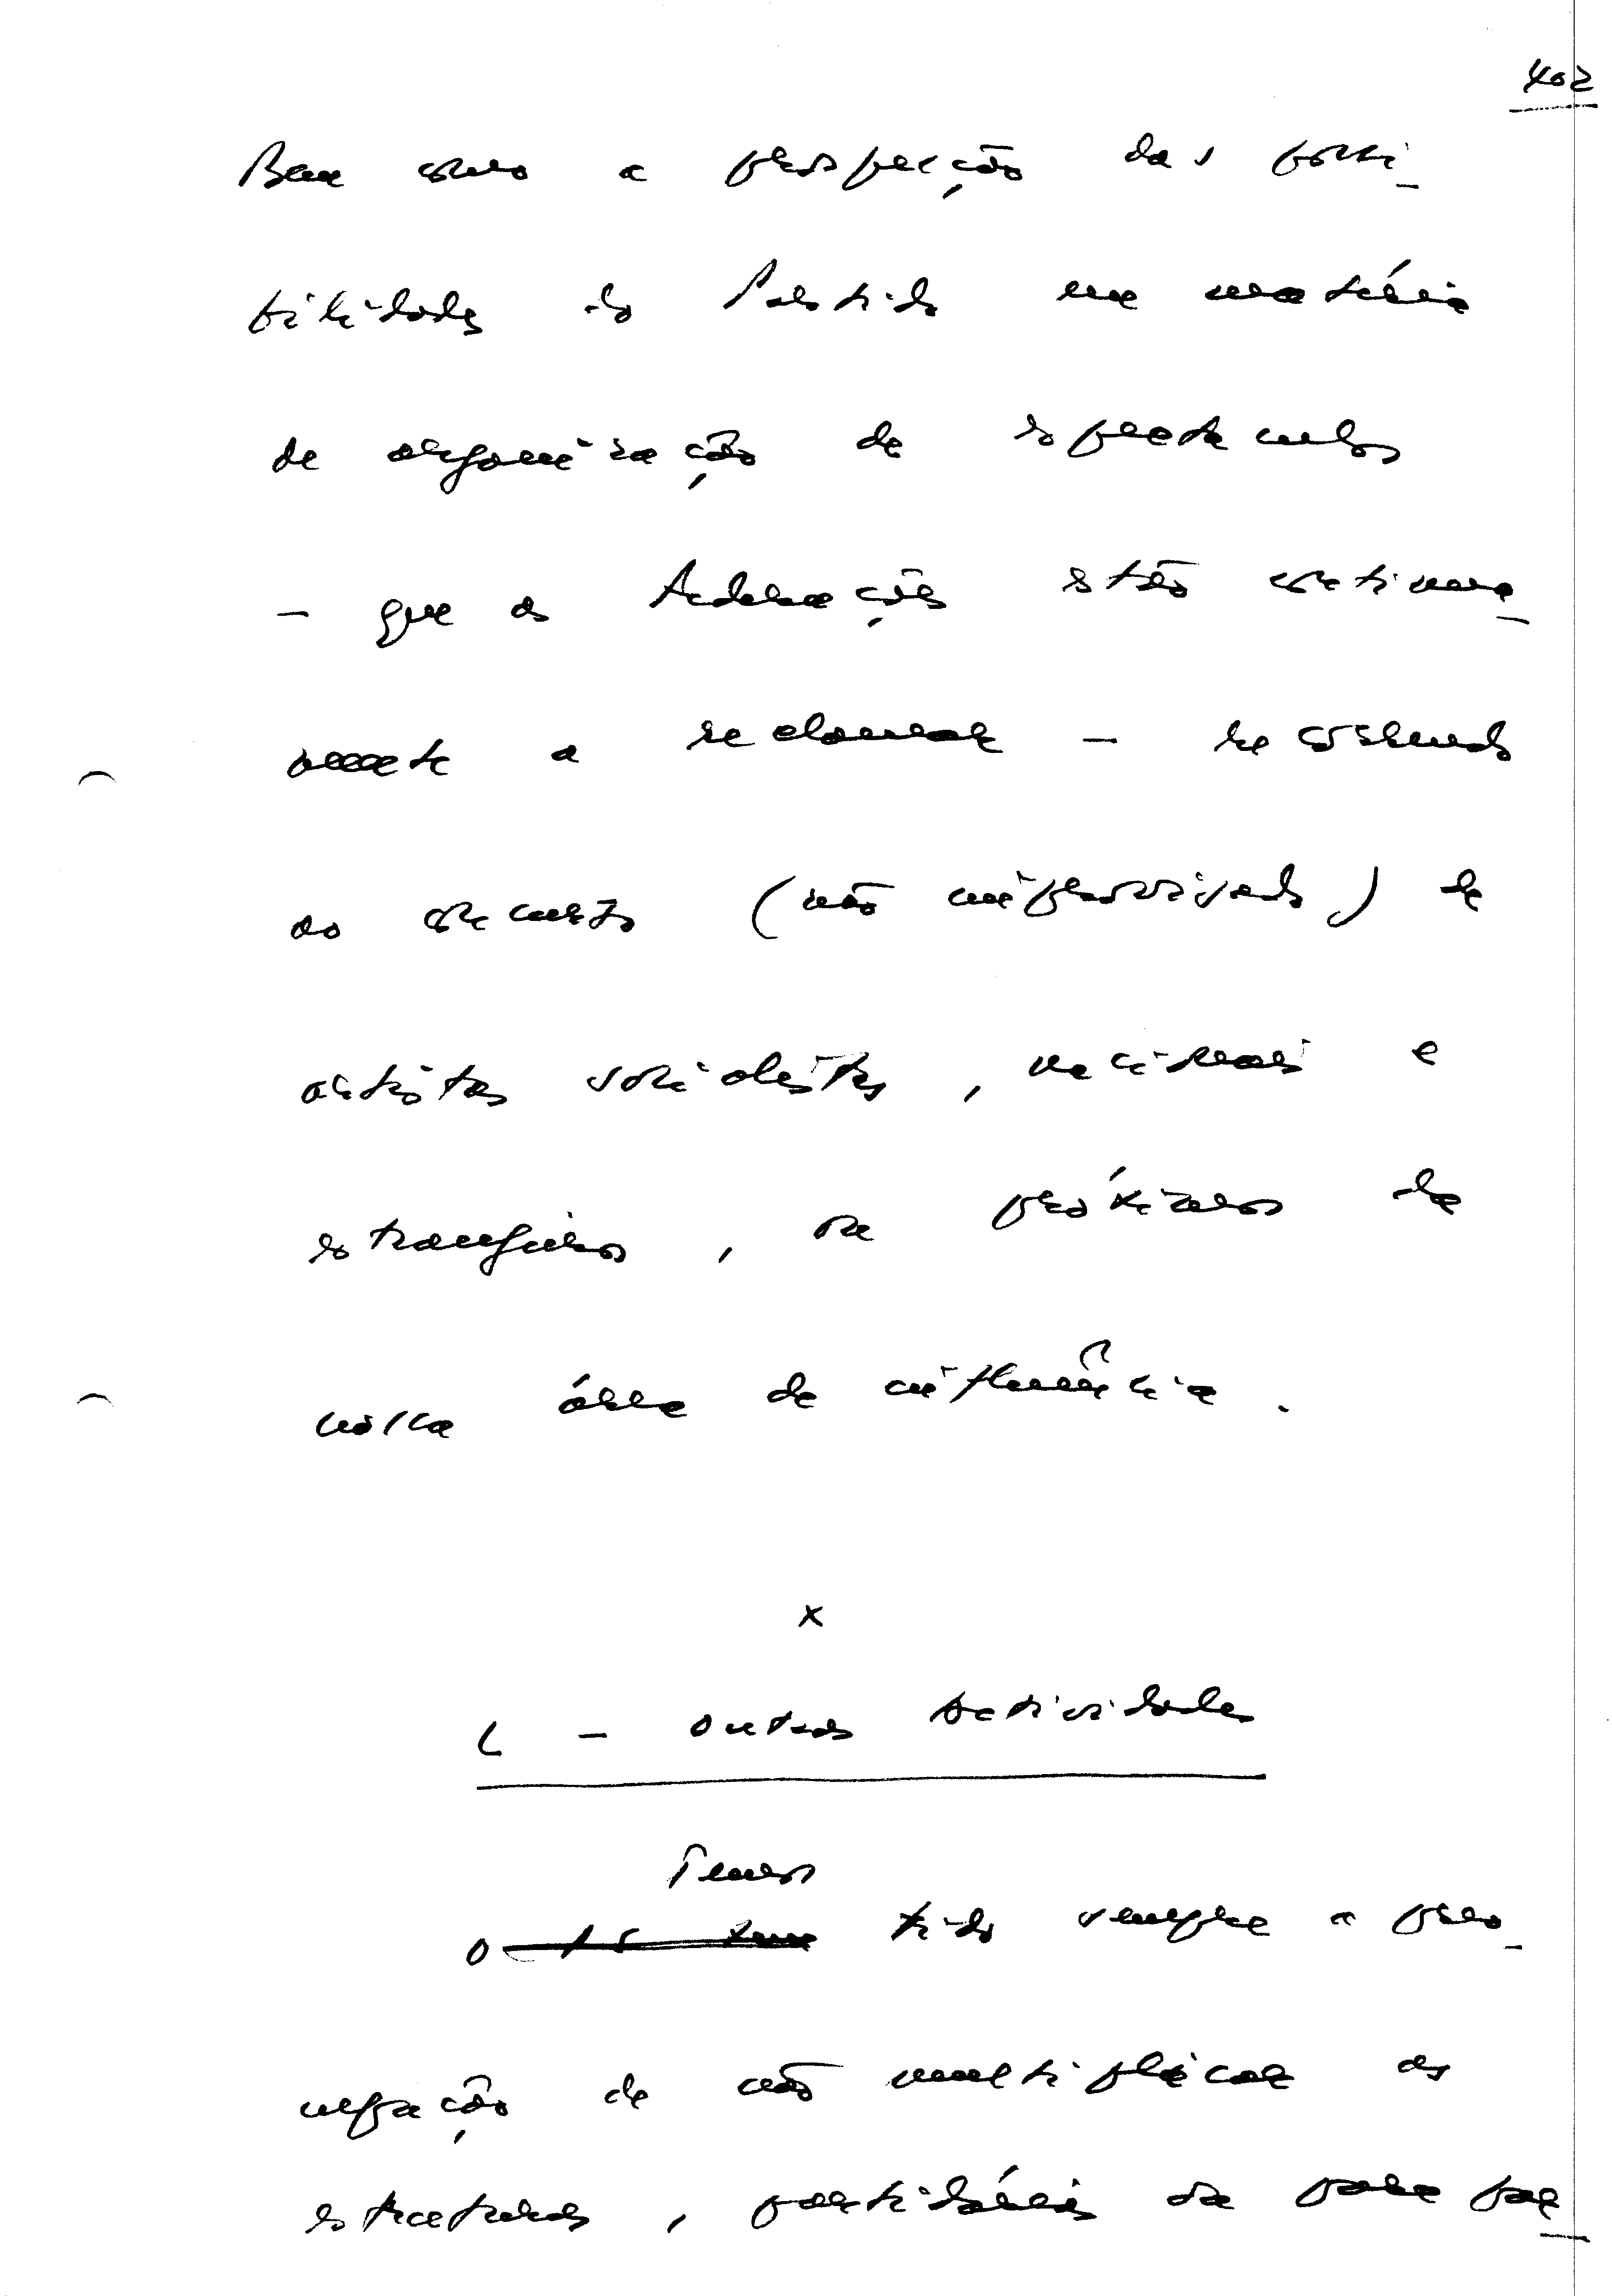 402
Bem como a prospecção das possi-
bilidades do Partido em matéria
de organização de espectáculos
- que as Federações estão continua-
mente a reclamar - recorrendo
ao concurso (não improvisado) de
artistas socialistas, nacionais e
estrangeiros, ou próximos da
nossa área de influência.
x
L - Outras Actividades
Temos
O PS tem tido sempre a preo-
cupação de não multiplicar as
estruturas, partidárias ou para par-